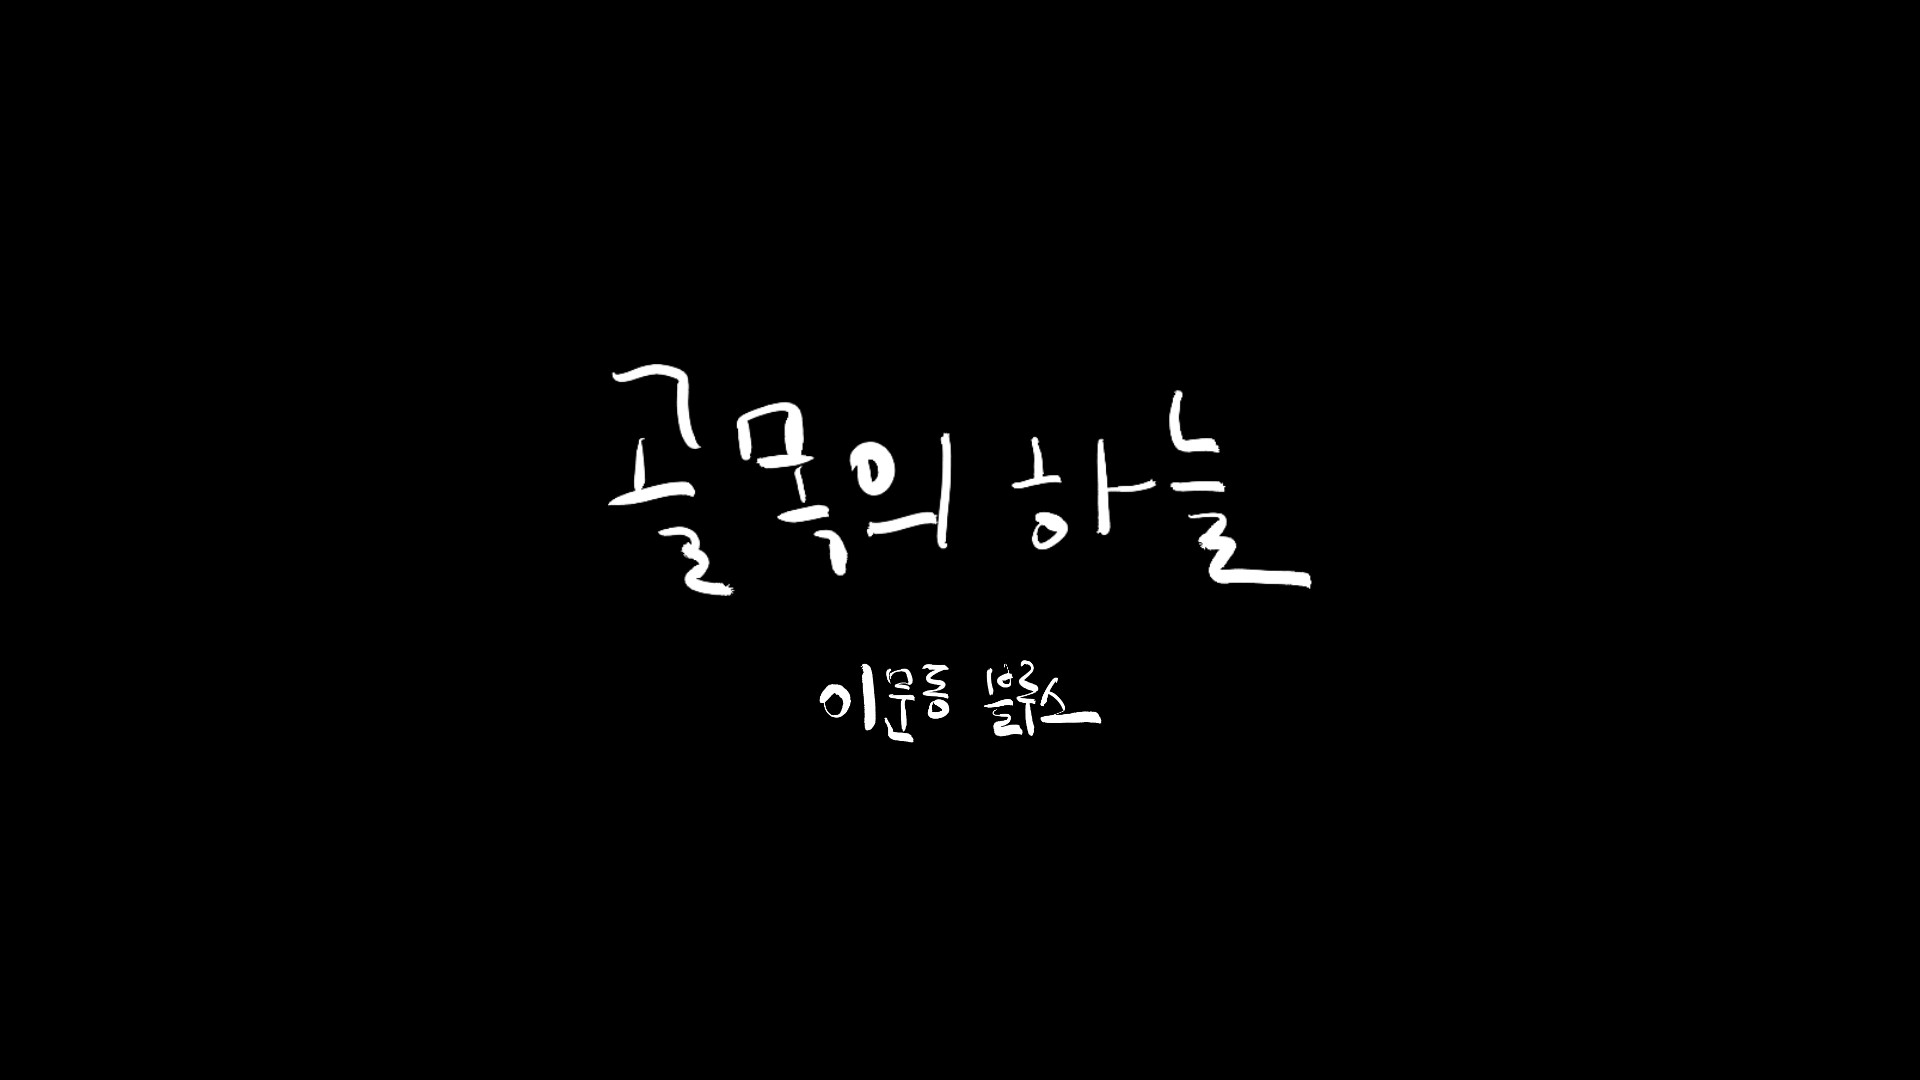 골목의 하늘
이문동 블루스